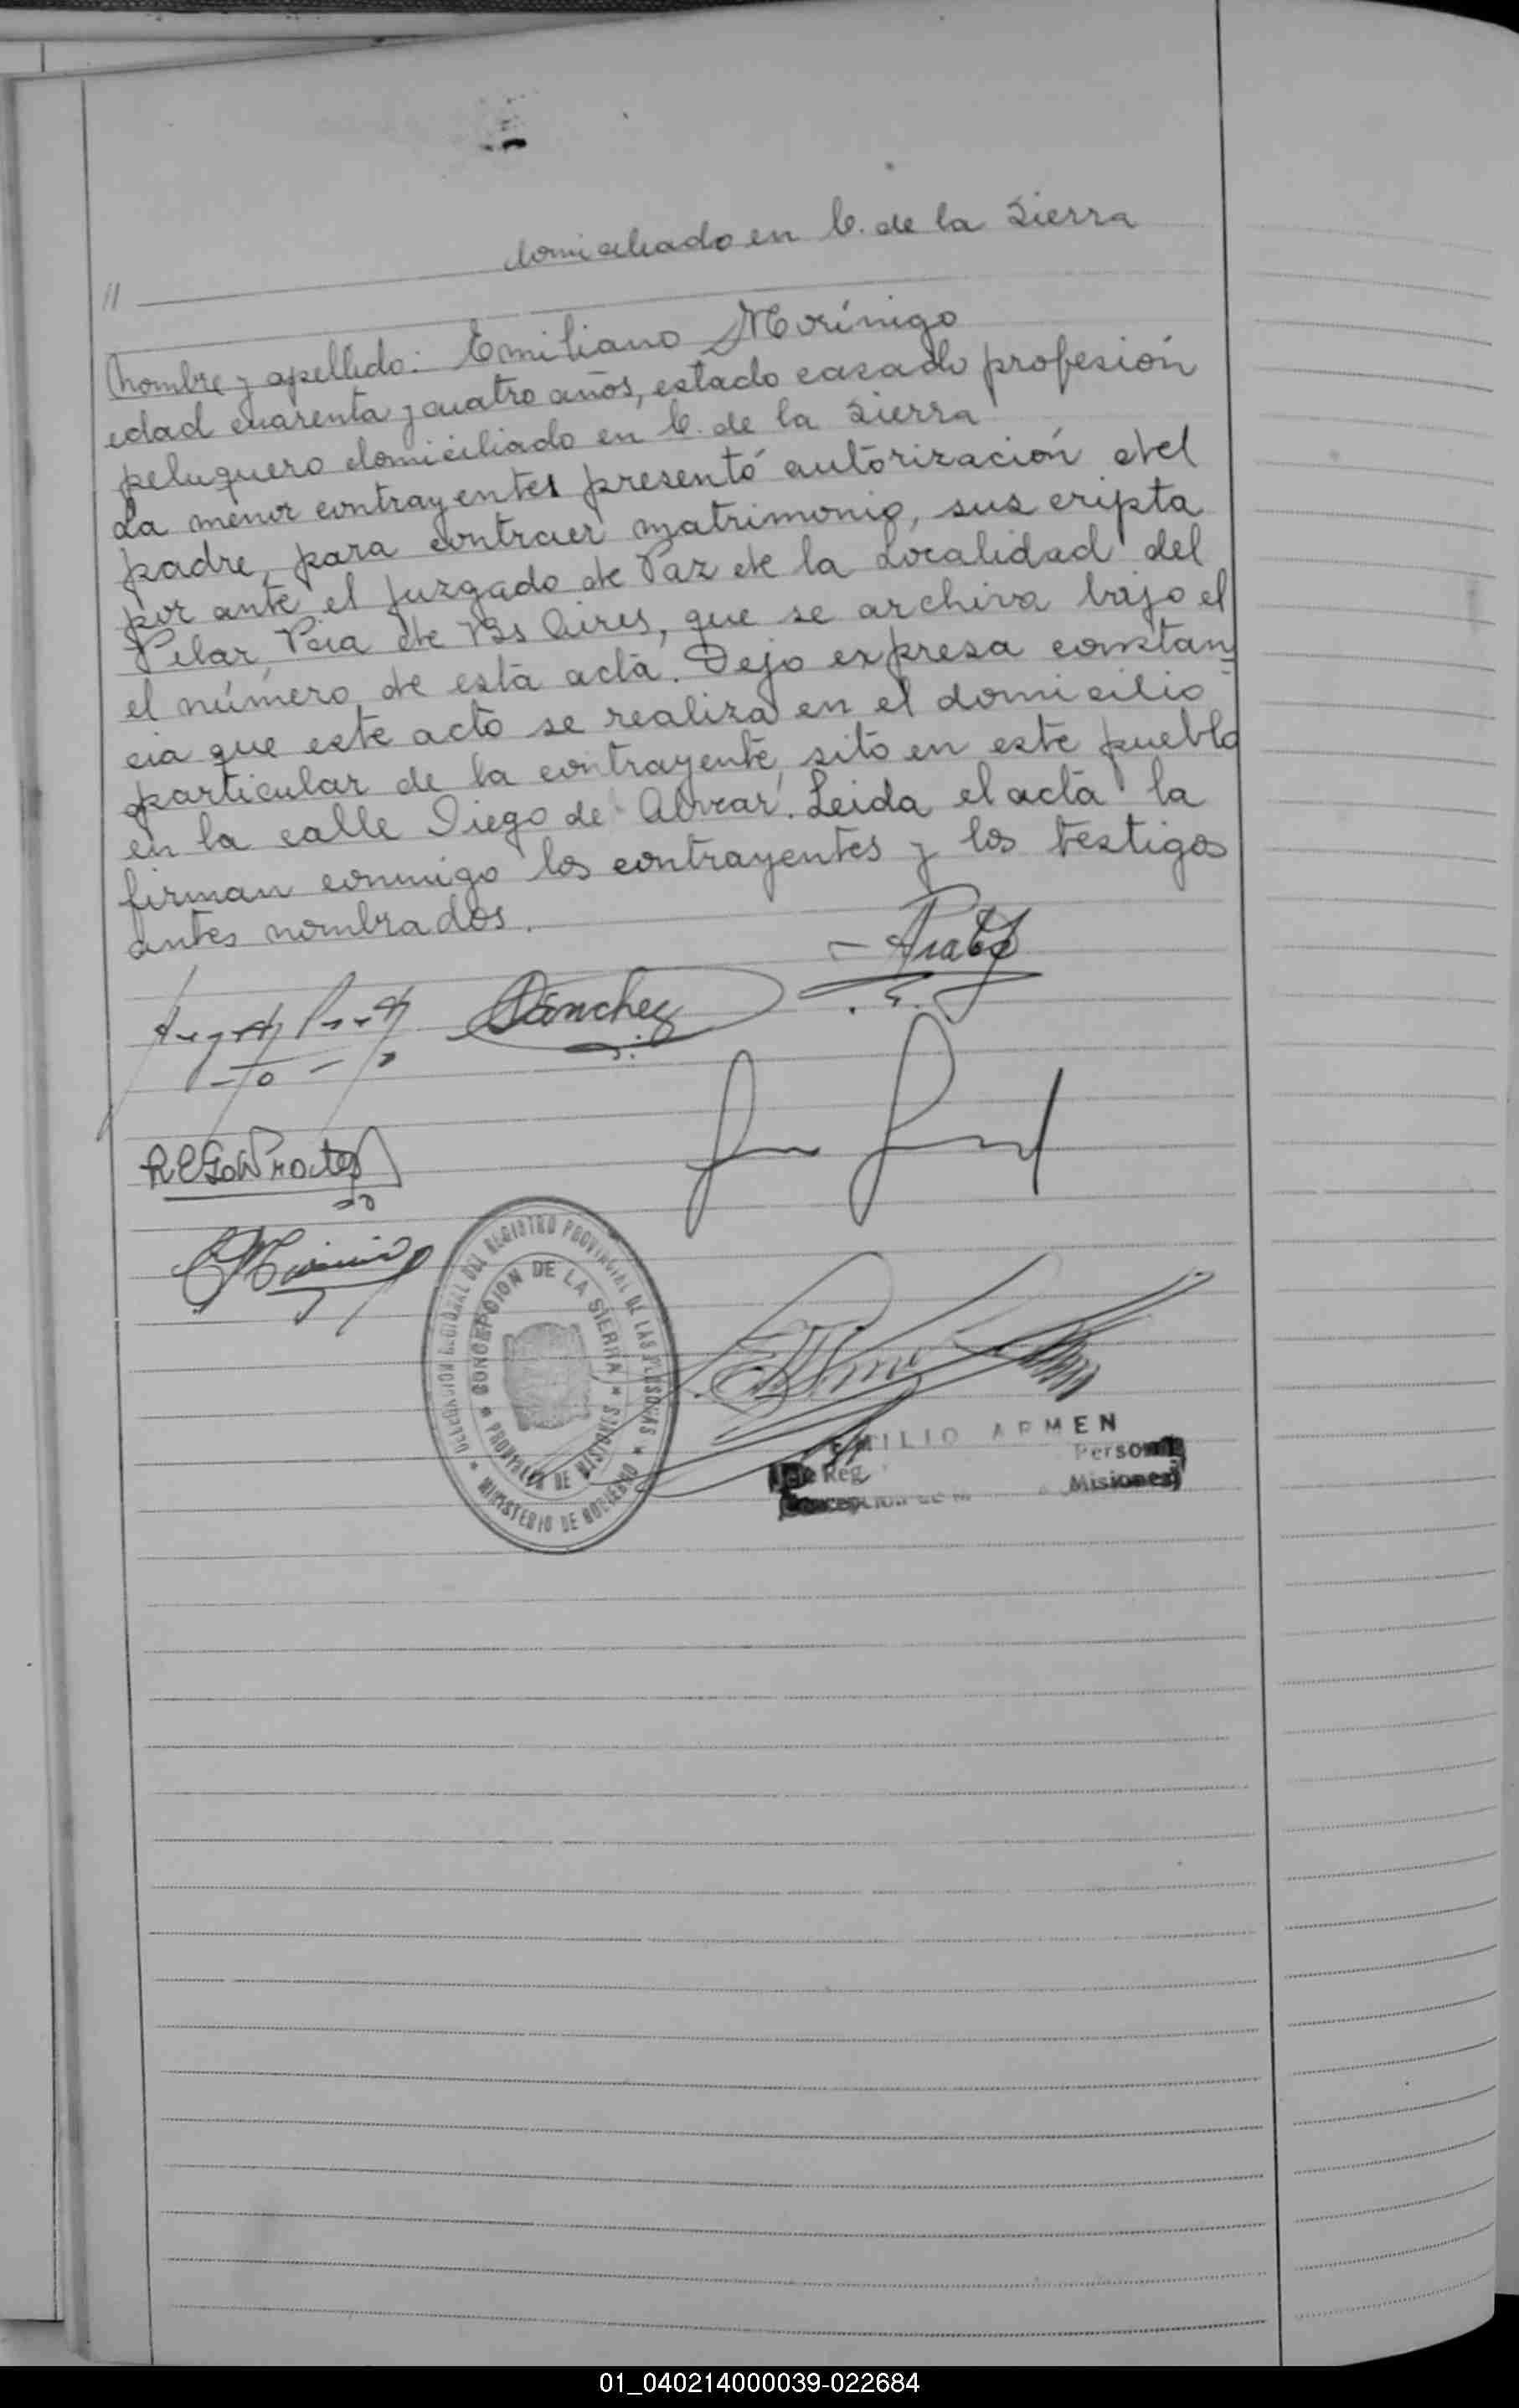 domiciliado en C. de la Sierra
//
Nombre y apellido: Emiliano Morínigo
edad cuarenta y cuatro años, estado casado profesión
peluquero domiciliado en C. de la Sierra
La menor contrayentes presentó autorización del
padre, para contraer matrimonio, suscripta
por ante el Juzgado de Paz de la Localidad del
Pilar, Pcia de Bs Aires, que se archiva bajo el
el número de esta acta. Dejo expresa constan=
cia que este acto se realiza en el domicilio
particular de la contrayente, sito en este pueblo
en la calle Diego de Alvear. Leida el acta la
firman conmigo los contrayentes y los testigos
antes nombrados.
Sanchez
DELEGACION REGIONAL DEL REGISTRO PROVINCIAL DE LAS PERSONAS
* MINISTERIO DE GOBIERNO *
CONCEPCION DE LA SIERRA
* PROVINCIA DE MISIONES *
EMILIO ARMEN
Reg. Person
Misiones
01_040214000039-022684